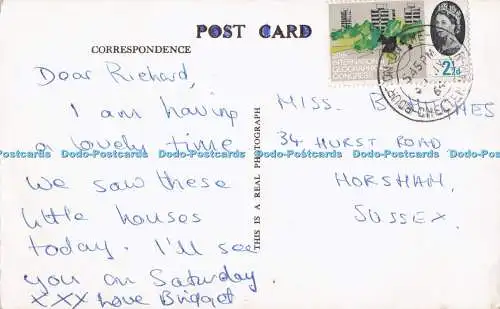 POST CARD
CORRESPONDENCE
Dear Richard,
I am having
a lovely time
We saw these
little houses
today. I'll see
you on Saturday.
XXX Love Bridget
THIS IS A REAL PHOTOGRAPH
MISS. B
34 HURST ROAD
HORSHAM,
SUSSEX.
20TH INTERNATIONAL
GEOGRAPHICAL
CONGRESS
2½d
5-15 PM
64
Dodo-Postcards Dodo-Postcards Dodo-Postcards Dodo-Postcards Dodo-Postcards Dodo-Postcards